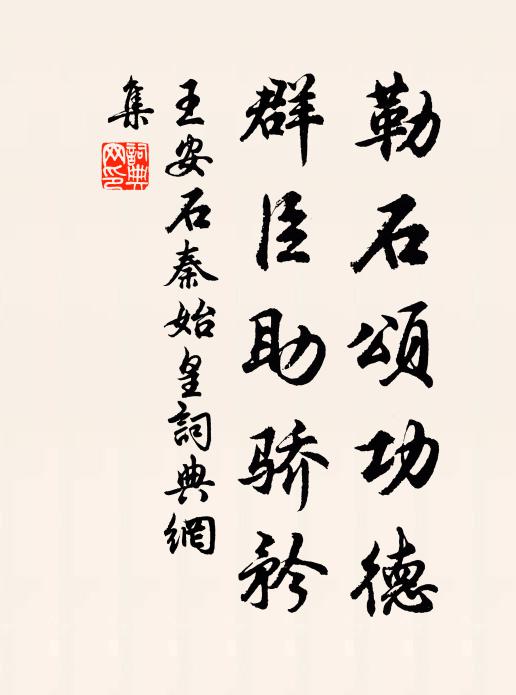 勒石頌功德
群臣助骄矜
王安石秦始皇詞典網
集
詞典網印